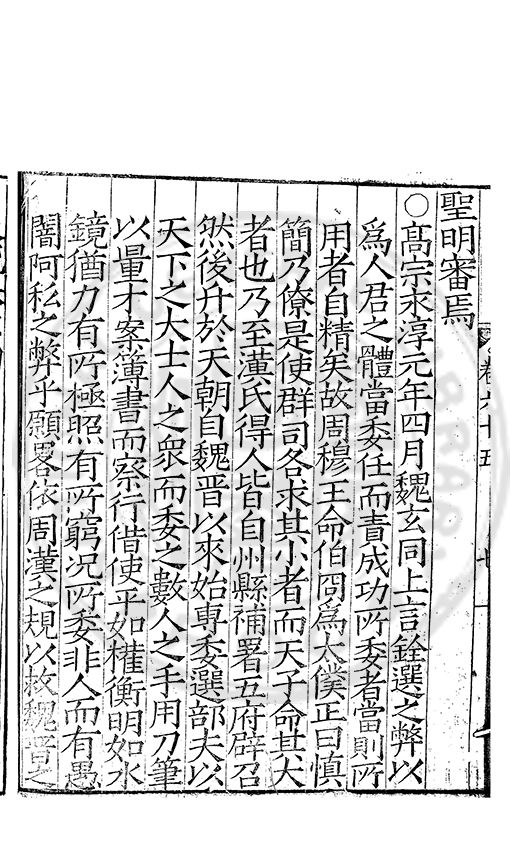 聖明審焉
○高宗永淳元年四月魏玄同上言銓選之弊以
為人君之體當委任而責成功所委者當則所
用者自精矣故周穆王命伯冏為太僕正曰慎
簡乃僚是使群司各求其小者而天子命其大
者也乃至漢氏得人皆自州縣補署五府辟召
然後升於天朝自魏晉以來始專委選部夫以
天下之大士人之衆而委之數人之手用刀筆
以量才案簿書而察行借使平如權衡明如水
鏡猶力有所極照有所窮況所委非人而有愚
闇阿私之弊乎願畧依周漢之規以救魏晉之
卷六十五
七